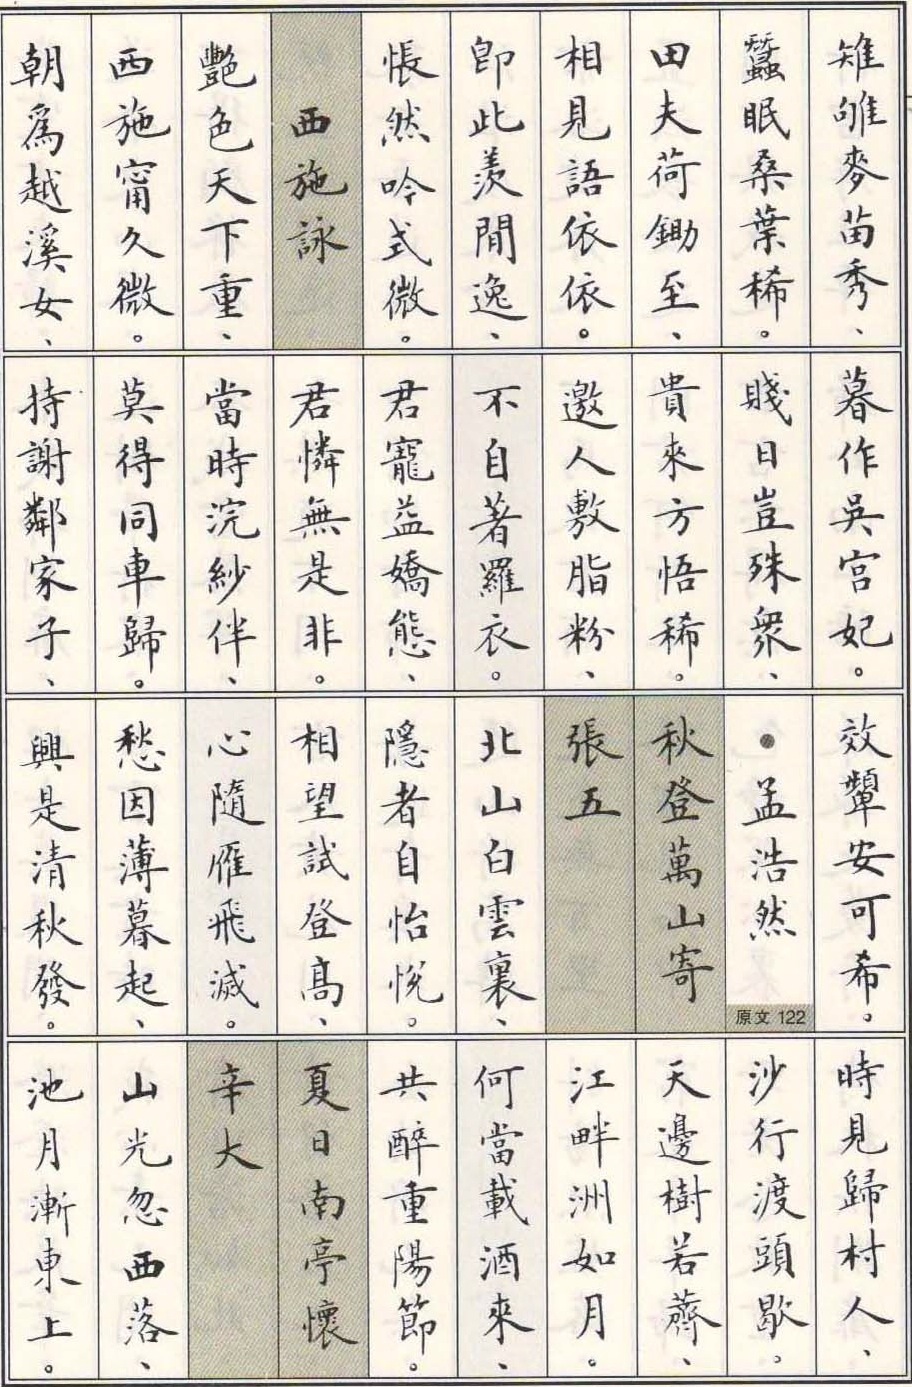 雉雊麥苗秀、
蠶眠桑葉稀。
田夫荷鋤至、
相見語依依。
即此羨閒逸、
悵然吟式微。
西施詠
豔色天下重、
西施甯久微。
朝爲越溪女、
暮作吳宮妃。
賤日豈殊眾、
貴來方悟稀。
邀人敷脂粉、
不自著羅衣。
君寵益嬌態、
君憐無是非。
當時浣紗伴、
莫得同車歸。
持謝鄰家子、
效顰安可希。
●孟浩然
原文 122
秋登萬山寄
張五
北山白雲裏、
隱者自怡悅。
相望試登高、
心隨雁飛滅。
愁因薄暮起、
興是清秋發。
時見歸村人、
沙行渡頭歇。
天邊樹若薺、
江畔洲如月。
何當載酒來、
共醉重陽節。
夏日南亭懷
辛大
山光忽西落、
池月漸東上。